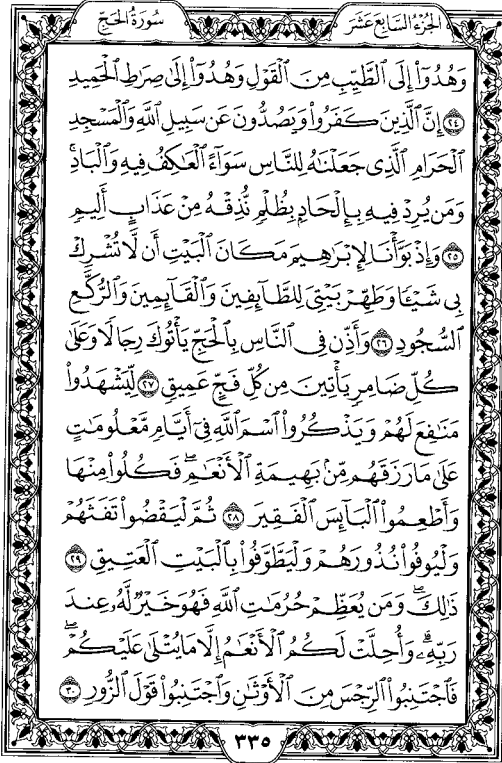 سُورَةُ الحَجّ
الجُزءُ السَّابِعُ عَشَرَ
وَهُدُوٓا۟ إِلَى ٱلطَّيِّبِ مِنَ ٱلْقَوْلِ وَهُدُوٓا۟ إِلَىٰ صِرَٰطِ ٱلْحَمِيدِ
٢٤ إِنَّ ٱلَّذِينَ كَفَرُوا۟ وَيَصُدُّونَ عَن سَبِيلِ ٱللَّهِ وَٱلْمَسْجِدِ
ٱلْحَرَامِ ٱلَّذِى جَعَلْنَٰهُ لِلنَّاسِ سَوَآءً ٱلْعَٰكِفُ فِيهِ وَٱلْبَادِ ۚ
وَمَن يُرِدْ فِيهِ بِإِلْحَادٍۭ بِظُلْمٍ نُّذِقْهُ مِنْ عَذَابٍ أَلِيمٍ
٢٥ وَإِذْ بَوَّأْنَا لِإِبْرَٰهِيمَ مَكَانَ ٱلْبَيْتِ أَن لَّا تُشْرِكْ
بِى شَيْـًٔا وَطَهِّرْ بَيْتِىَ لِلطَّآئِفِينَ وَٱلْقَآئِمِينَ وَٱلرُّكَّعِ
ٱلسُّجُودِ ٢٦ وَأَذِّن فِى ٱلنَّاسِ بِٱلْحَجِّ يَأْتُوكَ رِجَالًا وَعَلَىٰ
كُلِّ ضَامِرٍ يَأْتِينَ مِن كُلِّ فَجٍّ عَمِيقٍ ٢٧ لِّيَشْهَدُوا۟
مَنَٰفِعَ لَهُمْ وَيَذْكُرُوا۟ ٱسْمَ ٱللَّهِ فِىٓ أَيَّامٍ مَّعْلُومَٰتٍ
عَلَىٰ مَا رَزَقَهُم مِّنۢ بَهِيمَةِ ٱلْأَنْعَٰمِ ۖ فَكُلُوا۟ مِنْهَا
وَأَطْعِمُوا۟ ٱلْبَآئِسَ ٱلْفَقِيرَ ٢٨ ثُمَّ لْيَقْضُوا۟ تَفَثَهُمْ
وَلْيُوفُوا۟ نُذُورَهُمْ وَلْيَطَّوَّفُوا۟ بِٱلْبَيْتِ ٱلْعَتِيقِ ٢٩
ذَٰلِكَ ۖ وَمَن يُعَظِّمْ حُرُمَٰتِ ٱللَّهِ فَهُوَ خَيْرٌ لَّهُۥ عِندَ
رَبِّهِۦ ۗ وَأُحِلَّتْ لَكُمُ ٱلْأَنْعَٰمُ إِلَّا مَا يُتْلَىٰ عَلَيْكُمْ ۖ
فَٱجْتَنِبُوا۟ ٱلرِّجْسَ مِنَ ٱلْأَوْثَٰنِ وَٱجْتَنِبُوا۟ قَوْلَ ٱلزُّورِ ٣٠
٣٣٥